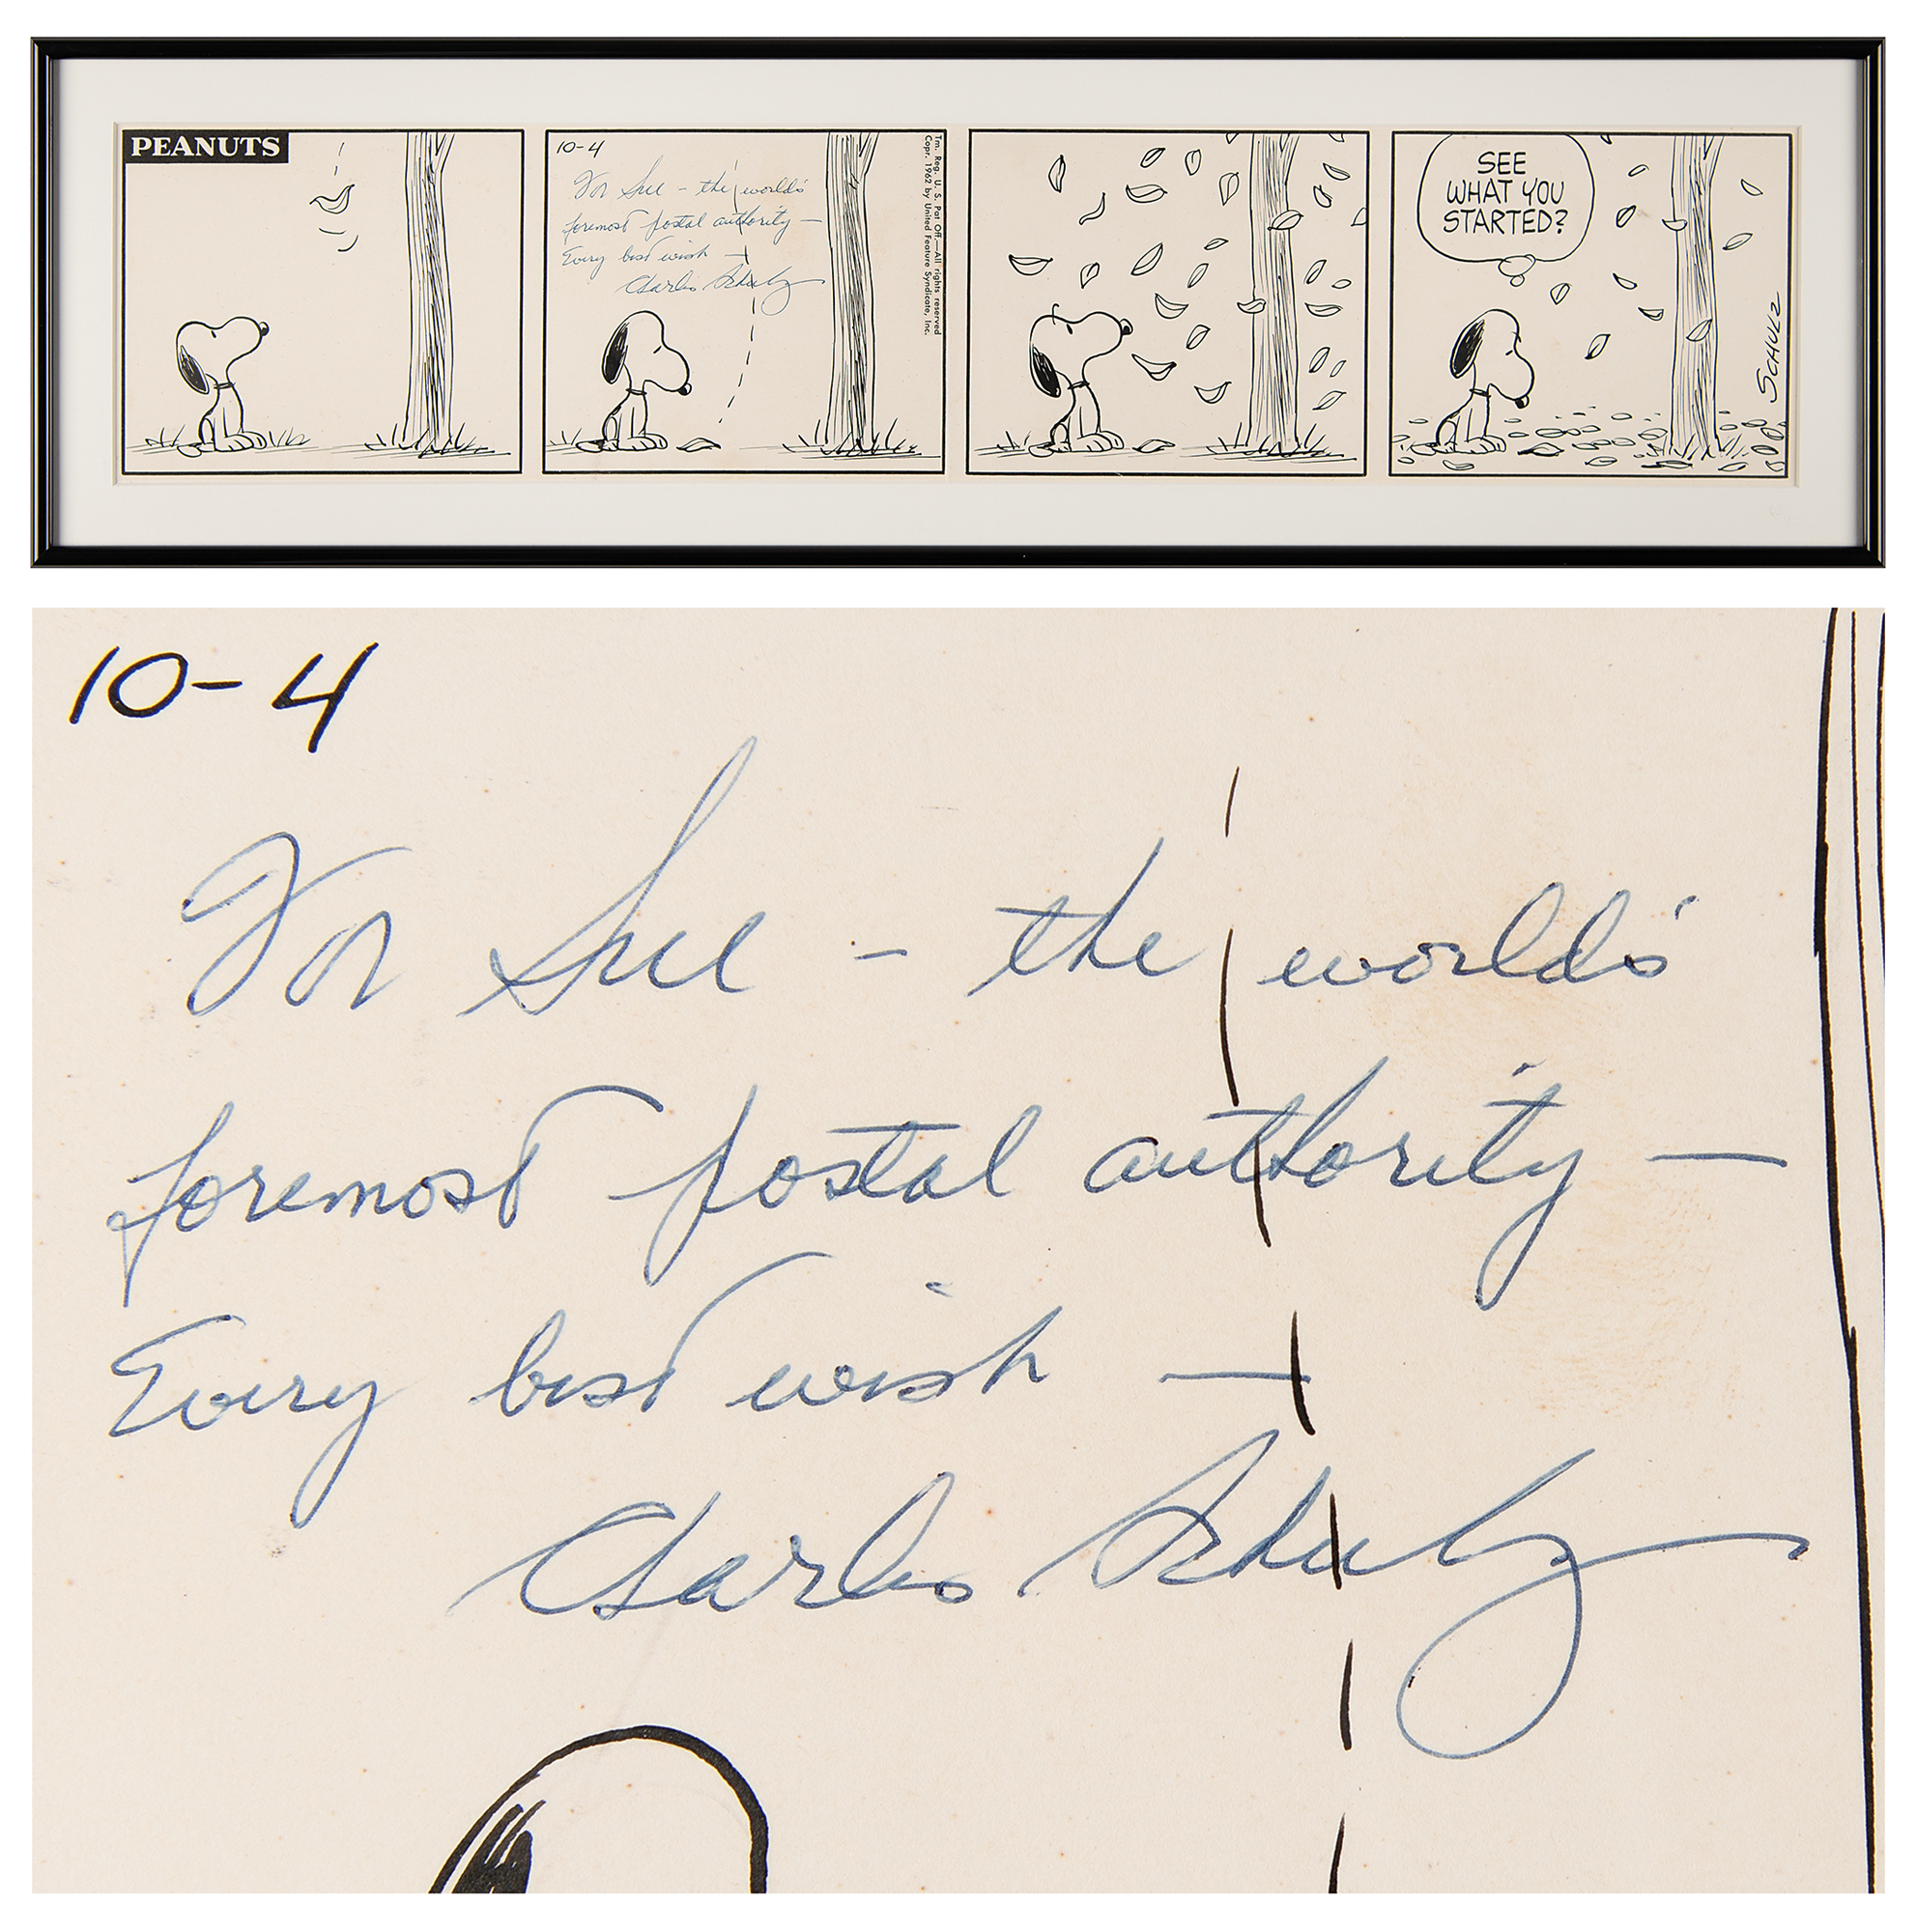 PEANUTS
10-4
For Sue - the world's
foremost postal authority —
Every best wish —
Charles Schulz
Tm. Reg. U. S. Pat Off.—All rights reserved
Copr. 1962 by United Feature Syndicate, Inc.
SEE
WHAT YOU
STARTED?
SCHULZ
10-4
For Sue - the world's
foremost postal authority —
Every best wish —
Charles Schulz